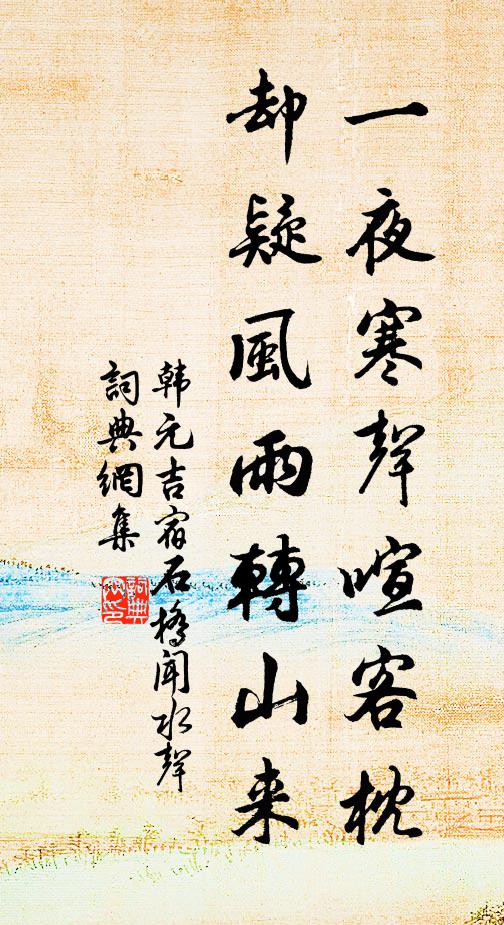 一夜寒聲喧客枕
却疑風雨轉山来
韩元吉宿石橋聞水聲
詞典網集